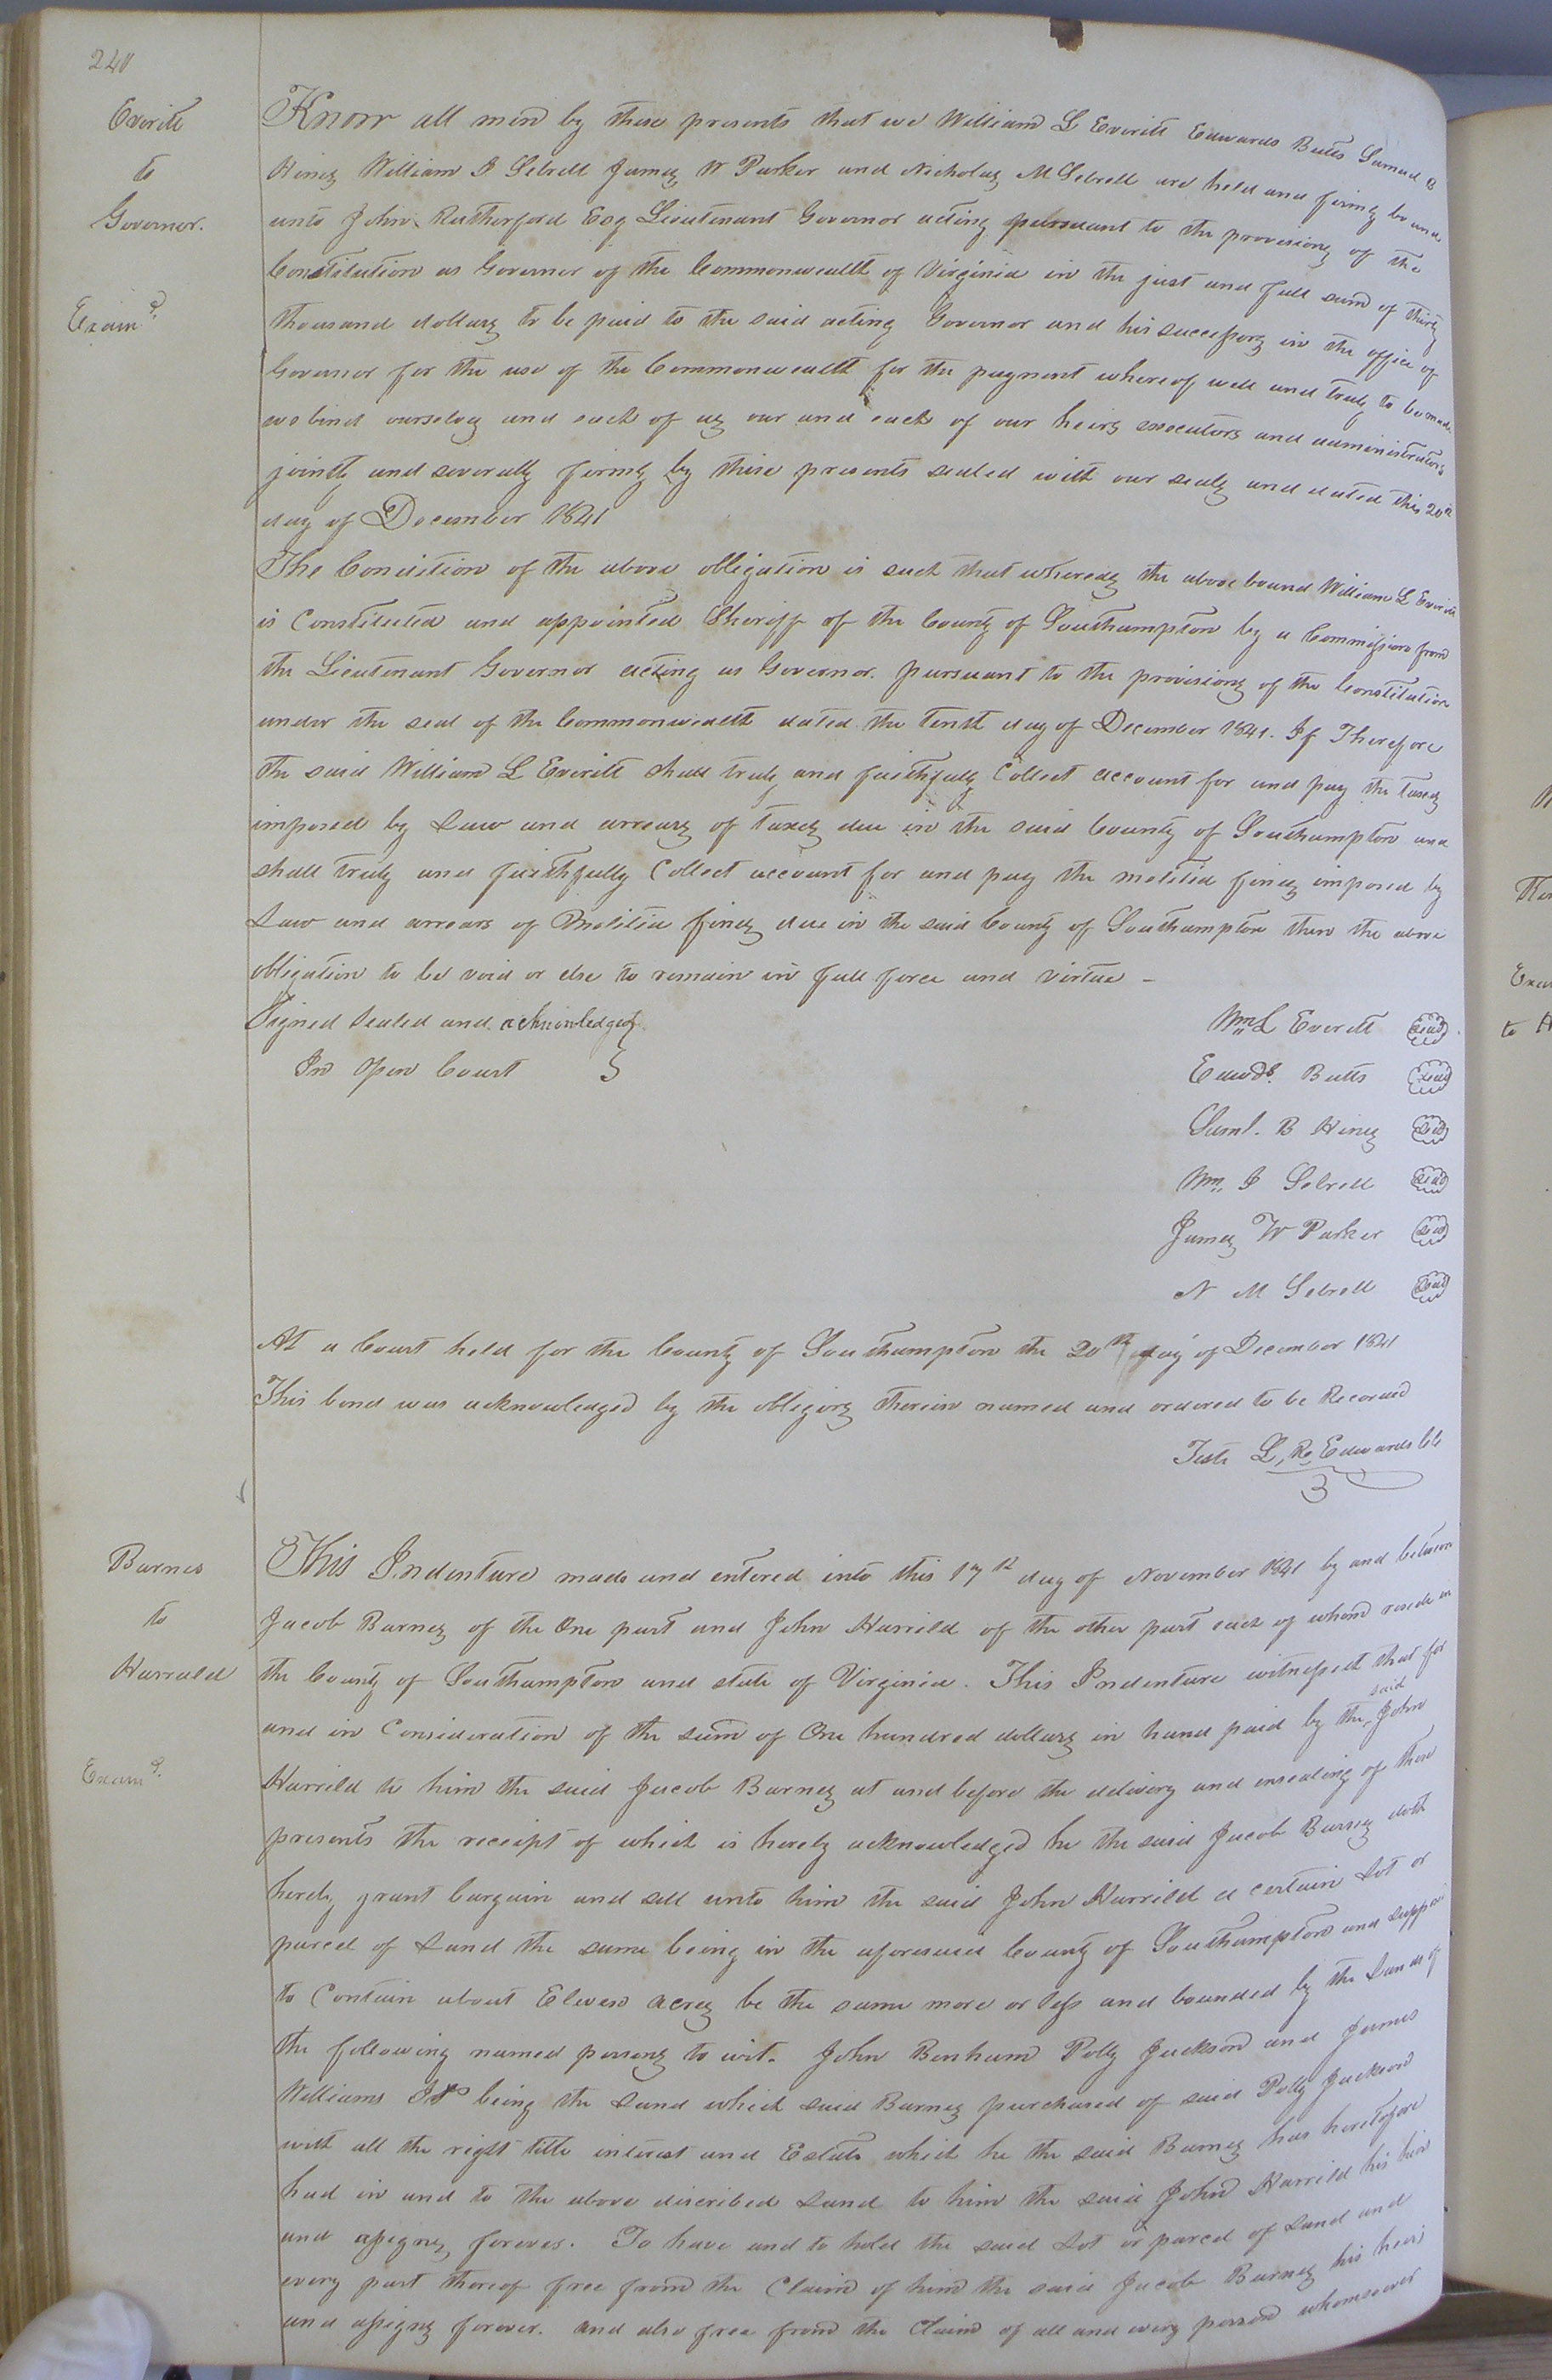 240
Everitt
to
Governor.
Exam.d
Know all men by these presents that we William L Everitt Edwards Butts Samuel B
Hines William J Sebrell James W Parker and Nicholas M Sebrell are held and firmly bound
unto John Rutherford Esq Lieutenant Governor acting pursuant to the provisions of the
Constitution as Governor of the Commonwealth of Virginia in the just and full sum of thirty
thousand dollars to be paid to the said acting Governor and his successors in the office of
Governor for the use of the Commonwealth for the payment whereof well and truly to be made
we bind ourselves and each of us our and each of our heirs executors and administrators
jointly and severally firmly by these presents sealed with our seals and dated this 20th
day of December 1841
The Condition of the above obligation is such that whereas the above bound William L Everitt
is Constituted and appointed Sheriff of the County of Southampton by a Commission from
the Lieutenant Governor acting as Governor. pursuant to the provisions of the Constitution
under the seal of the Commonwealth dated the tenth day of December 1841. If Therefore
the said William L Everitt shall truly and faithfully Collect account for and pay the taxes
imposed by Law and arrears of taxes due in the said County of Southampton and
shall truly and faithfully Collect account for and pay the melitia fines imposed by
Law and arrears of Melitia fines due in the said County of Southampton then the above
obligation to be void or else to remain in full force and virtue -
Signed Sealed and acknowledged }
In Open Court }
Wm L Everitt seal
Edwds. Butts seal
Saml. B Hines seal
Wm J Sebrell seal
James W Parker seal
N M Sebrell seal
At a Court held for the County of Southampton the 20th day of December 1841
This bond was acknowledged by the obligors therein named and ordered to be Recorded
Teste L, R, Edwards Clk
Barnes
to
Harrald
Exam.d
This Indenture made and entered into this 17th day of November 1841 by and between
Jacob Barnes of the One part and John Harrild of the other part each of whom reside in
the County of Southampton and state of Virginia. This Indenture witnesseth that for
and in Consideration of the sum of One hundred dollars in hand paid by the said John
Harrild to him the said Jacob Barnes at and before the delivery and ensealing of these
presents the receipt of which is hereby acknowledged he the said Jacob Barnes doth
hereby grant bargain and sell unto him the said John Harrild a certain Lot or
parcel of Land the same being in the aforesaid County of Southampton and
to Contain about Eleven acres be the same more or less and bounded by the Lands of
the following named persons to wit. John Benham Polly Jackson and James
Williams It being the Land which said Barnes purchased of said Polly Jackson
with all the right title interest and Estate which he the said Barnes has heretofore
had in and to the above discribed Land to him the said John Harrild his heirs
and assigns forever. To have and to hold the said Lot or parcel of Land and
every part thereof free from the Claim of him the said Jacob Barnes his heirs
and assigns forever. and also free from the Claim of all and every person whomsoever